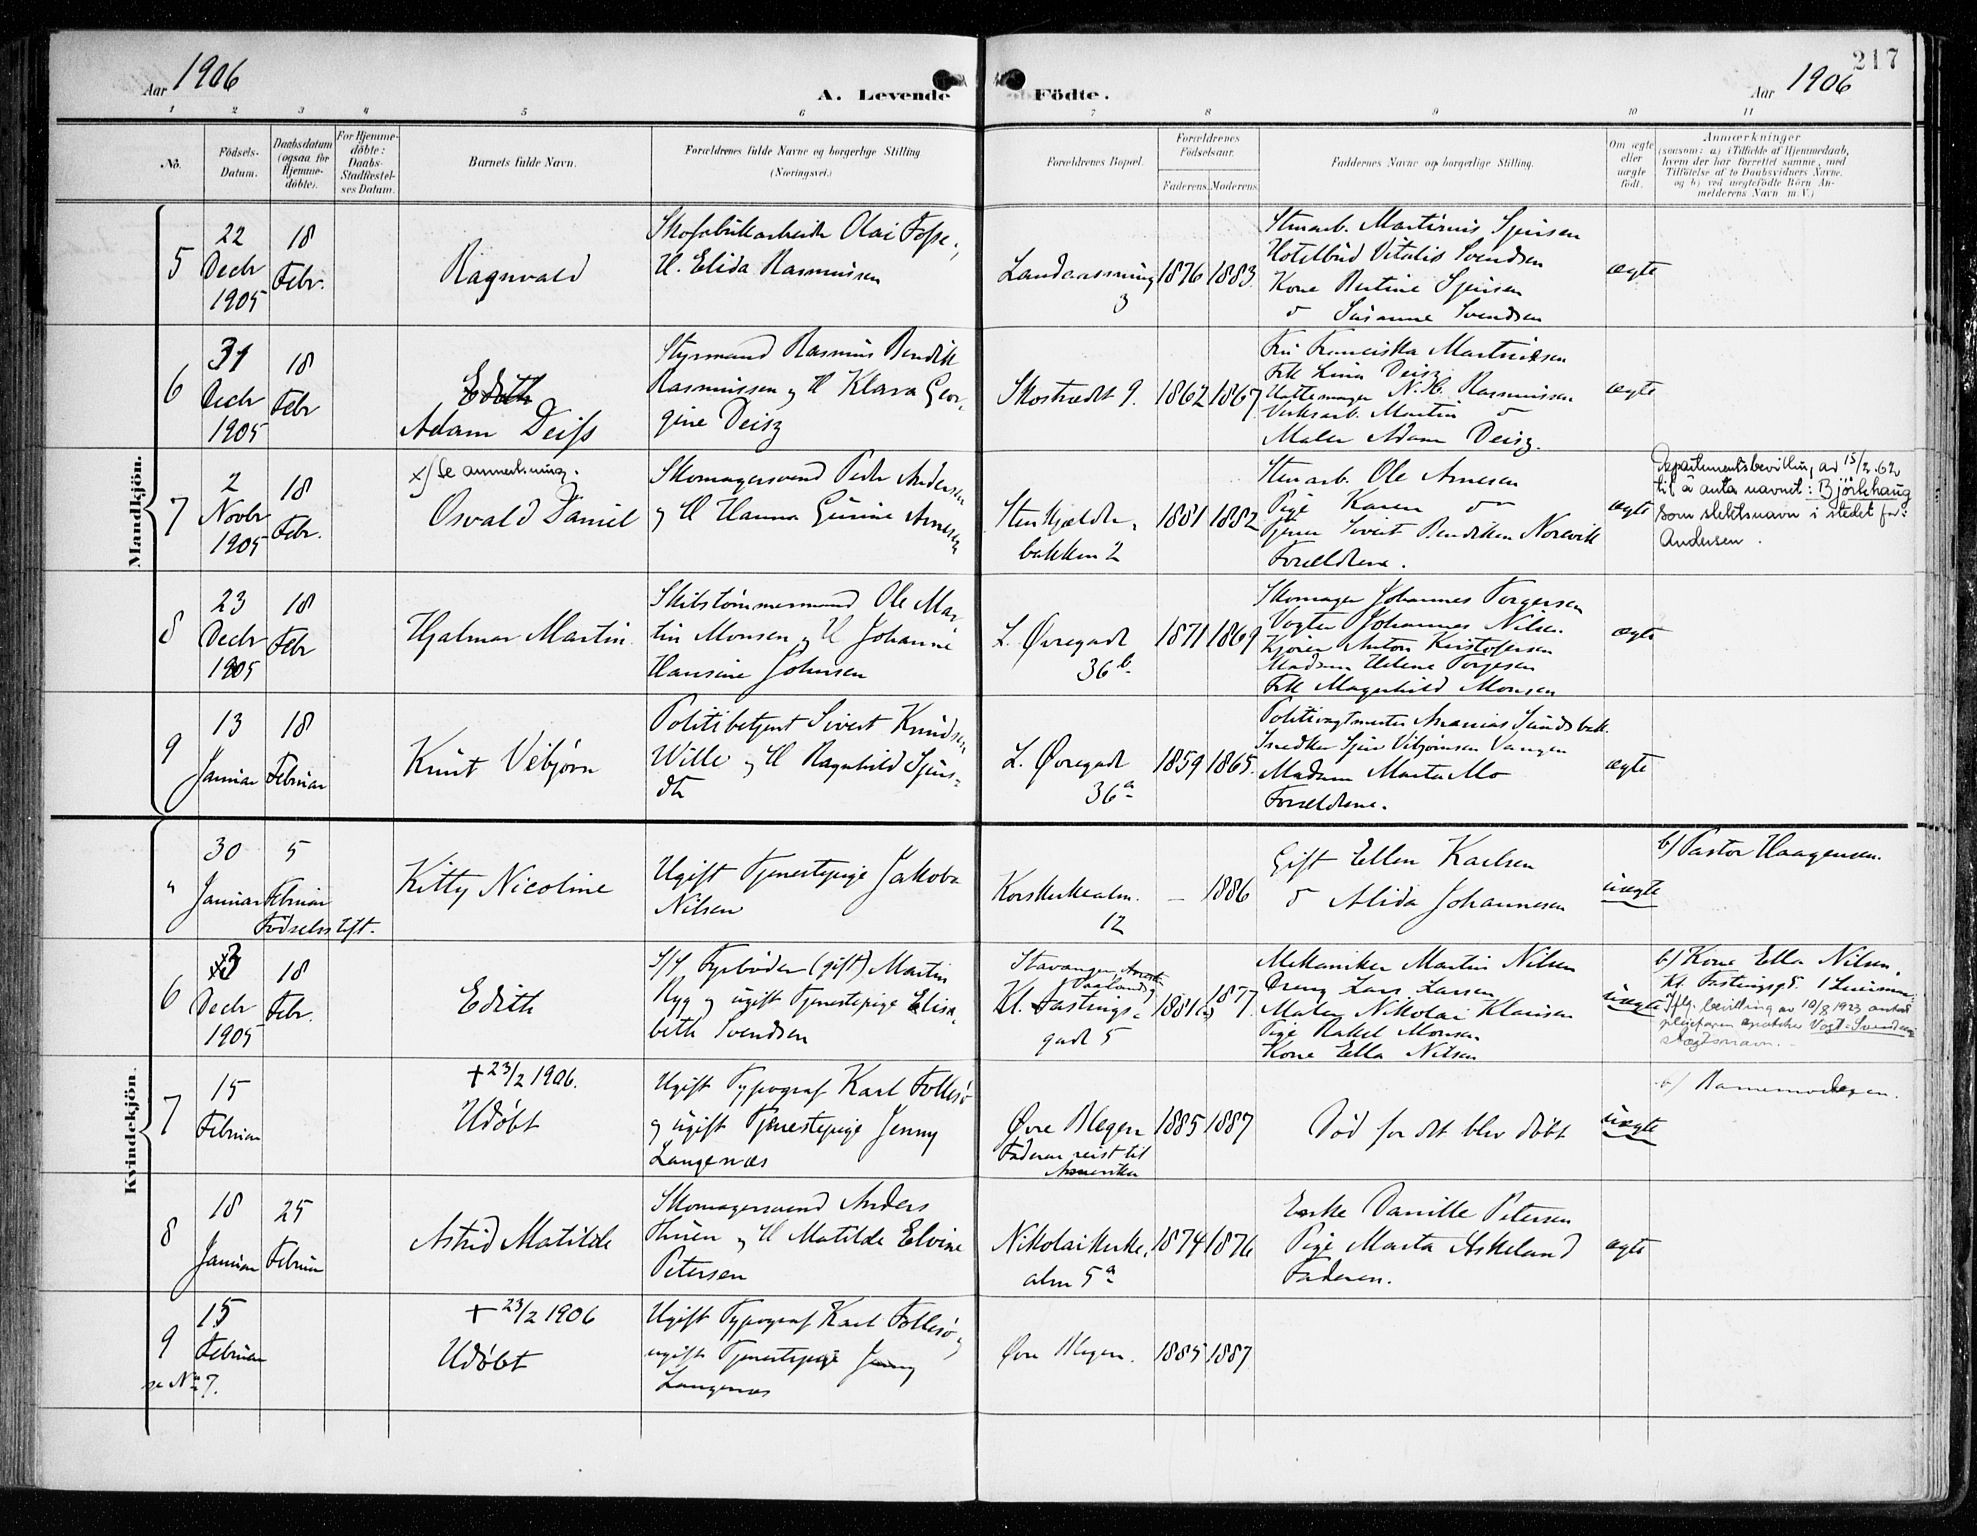 217
Aar 1906
A. Levende Födte.
Aar 1906
1 2 3 4 5 6 7 8 9 10 11
No.
Födsels-Datum.
Daabsdatum (ogsaa for Hjemme-döbte).
For Hjemme-döbte: Daabs-Stadfæstel-ses Datum.
Barnets fulde Navn.
Forældrenes fulde Navne og borgerlige Stilling
(Næringsvei.)
Forældrenes Bopæl.
Forældrenes Födselsaar.
Faderens. Moderens.
Faddernes Navne og borgerlige Stilling.
Om ægte eller uægte födt.
Anmærkninger
(saasom: a) i Tilfælde af Hjemmedaab,
hvem der har forrettet samme, med
Tilföielse af to Daabsvidners Navne,
og b) ved uægtefödte Börn An-
melderens Navn m.V.)
Mandkjön.
5
22
Decbr
1905
18
Febr.
Ragnvald
Skofabrikarbeider Olai Fosse,
H. Elida Rasmussen
Landaassving
3
1876 1883.
Stenarb. Martinus
Hotelbud Vitalis Svendsen
Kone Bertine
Susanne Svendsen
ægte
6
31
Decbr
1905
18
Febr
Edith
Adam Deiss
Styrmand Rasmus Bendik
Rasmussen og H Klara Geor-
gine Deisz
Skostrædet 9.
1862 1867
Fru Franciska Martinsen
Frk Lina Deisz
Hattemager N. H. Rasmussen
Verksarb. Martin
Maler Adam Deisz.
ægte
7
2
Novbr
1905
18
Febr.
x) se anmerkning.
Osvald Daniel
Skomagersvend Peder Andersen
og H Hanna Gurine Arnesen
Stenkjælder-
bakken 2
1881 1882
Stenarb. Ole Arnesen
Pige Karen
Tjener Sivert Bendiksen Norevik
Forældrene.
ægte
Departementsbevilling av 15/2.62
til å anta navnet: Björkhaug
som slektsnavn i stedet for:
Andersen.
8
23
Decbr
1905
18
Febr
Hjalmar Martin
Skibstømmermand Ole Mar-
tin Monsen og H Johanne
Hansine Johnsen
L. Øvregade
36b.
1871 1869
Skomager Johannes Torgersen
Vogter Johannes Nilsen.
Kjører Anton Kristofersen
Madam Helene Torgersen
Frk Magnhild Monsen
ægte
9
13
Januar
18
Februar
Knut Vibjørn
Politibetjent Sivert Knudsen
Wille og H Ragnhild Sjurs-
dtr
L. Øvregade
36a
1859 1865.
Politivagtmester Ananias Sundsbak.
Snedker Sjur Vibjørnsen Vangen
Madam Marta Mo
Forældrene.
ægte
Kvindekjön.
"
30
Januar
5
Februar
Fødselsstift.
Kitty Nicoline
Ugift Tjenestepige Jakoba
Nilsen
Korskirkealm.
12
— 1886
Gift Ellen Karlsen
Alida Johannesen
uægte
b) Pastor Haagensen.
6
3
Decbr
1905
18
Febr.
Edith
S/S Fyrbøder (gift) Martin
Ryg og ugift Tjenestepige Elisa-
beth Svendsen
Stavanger,
Kl. Fastings-
gade 5
1881 1877.
Mekaniker Martin Nilsen
Dreng Lars Larsen
Maler Nikolai Klausen
Pige Rakel Monsen
Kone Ella Nilsen
uægte
b) Kone Ella Nilsen,
Kl. Fastingsgd.
Iflg. bevilling av 10/8 1923 antat
pleiefaren apotheker Vogt-Svendsens
slægtsnavn.
7
15
Februar
+ 23/2 1906.
Udøbt
Ugift Typograf Karl Follesø
og ugift Tjenestepige Jenny
Langenæs
Øvre Blegen
Faderen reist til
Amerika
1885 1887
Død før det blev døbt
uægte
b) Barnemoderen.
8
18
Januar
25
Februar
Astrid Matilde
Skomagersvend Anders
Thuen og H Matilde Elvine
Petersen
Nikolaikirke-
alm 5a
1874 1876
Enke Danille Petersen
Pige Marta Askeland
Faderen.
ægte
9
se No 7.
15
Februar
+ 23/2 1906
Udøbt
Ugift Typograf Karl Follesø og
ugift Tjenestepige Jenny
Langenæs
Øvre Blegen.
1885 1887